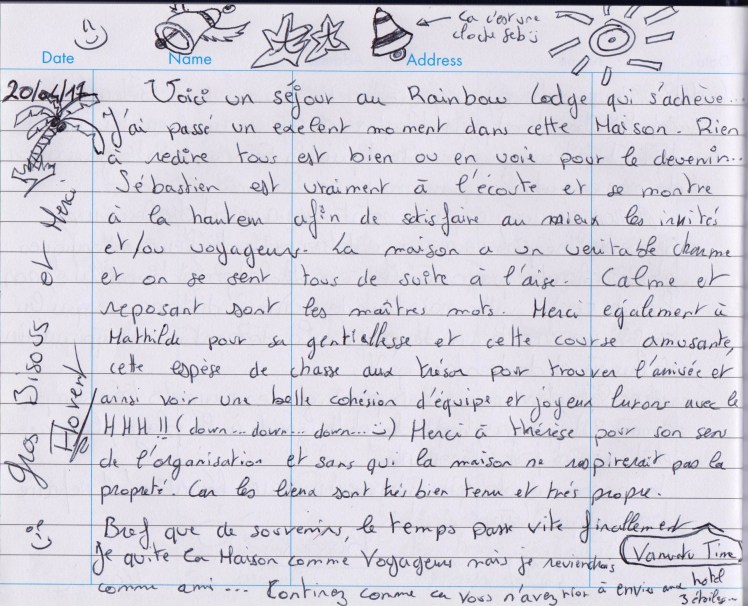 ça c'est une
cloche Seb :)
Date Name Address
20/04/17 Voici un séjour au Rainbow Lodge qui s'achève...
J'ai passé un exelent moment dans cette Maison. Rien
à redire tous est bien ou en voie pour le devenir...
Sébastien est vraiment à l'écoute et se montre
à la hauteur afin de satisfaire au mieux les invités
et/ou voyageurs. La maison a un veritable charme
et on se sent tous de suite à l'aise. Calme et
reposant sont les maîtres mots. Merci également à
Mathilde pour sa gentiellesse et cette course amusante,
cette espèse de chasse aux trésor pour trouver l'arrivée et
ainsi voir une belle cohésion d'équipe et joyeux lurons avec le
HHH !! (down... down... down... :) Merci à thérèse pour son sens
de l'organisation et sans qui la maison ne respirerait pas la
propreté. Car les lieux sont très bien tenu et très propre.
Bref que de souvenirs, le temps passe vite finallement
Vanuatu Time
Je quite la Maison comme Voyageur mais je reviendras
comme ami... Continez comme ça vous n'avez rien à envier aux hotel
3 étoiles~
Gros Bisous et Merci
Florent